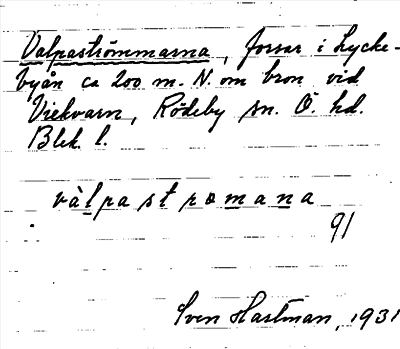 Valpaströmmarna, forsar i Lycke-
byån ca 200 m. N. om bron vid
Viekvarn, Rödeby sn. Ö. hd.
Blek. l.
vàlpastrømana
91
Sven Hastman, 1931